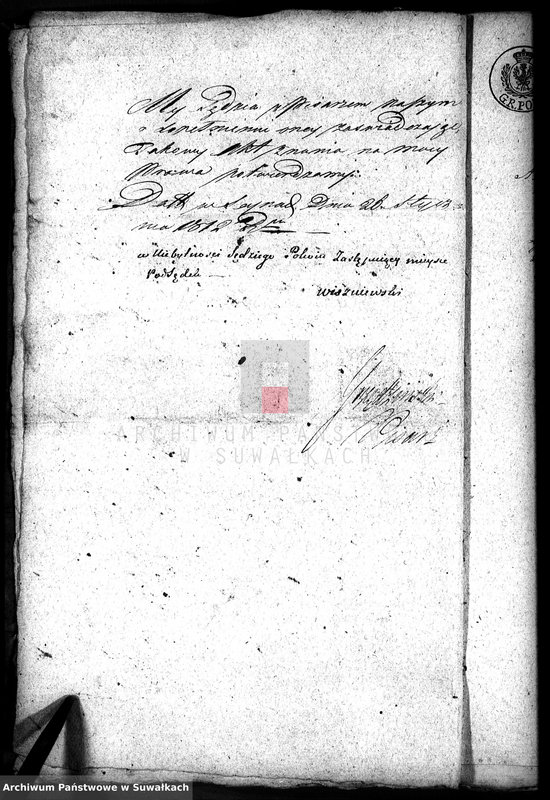 My Sędzia z Pisarzem naszym
o rzetelności tney zaświadczając
Takowy Akt znania na mocy
Prawa potwierdzamy.
Datt w Sejnach Dnia 26. Stycz-
nia 1812 R.
w Niebytności Sędziego Pokoiu Zastępuiący mieysce
Podsędek
Wiszniewski
Pisarz
G.R.PO
ARCHIWUM PAŃSTW
W SUWAŁKACH
Archiwum Państwowe w Suwałkach